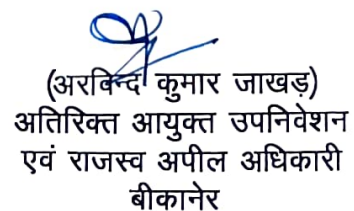 (अरविन्द कुमार जाखड़)
अतिरिक्त आयुक्त उपनिवेशन
एवं राजस्व अपील अधिकारी
बीकानेर